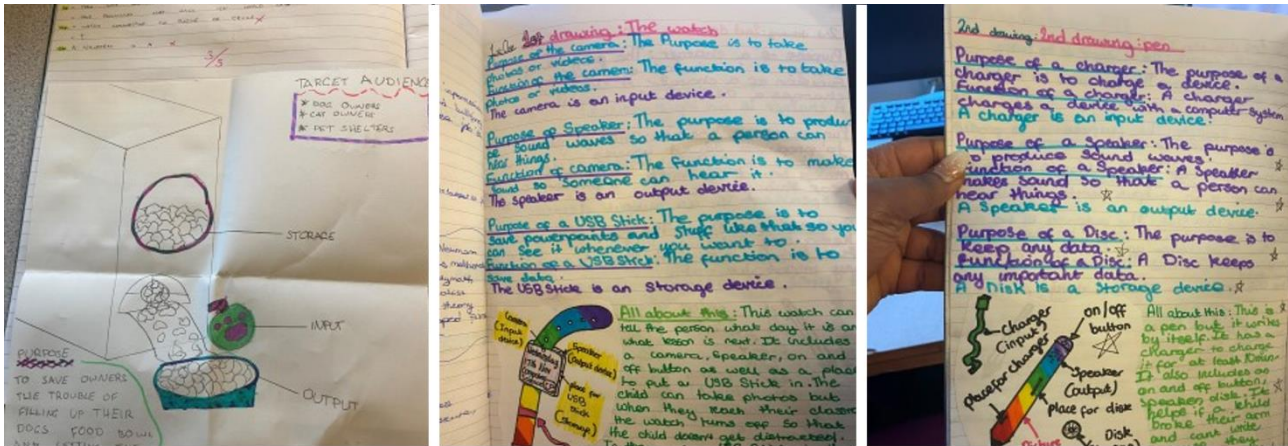 5/5
TARGET AUDIENCE
* DOG OWNERS
* CAT OWNERS
* PET SHELTERS
STORAGE
INPUT
OUTPUT
PURPOSE
TO SAVE OWNERS
THE TROUBLE OF
FILLING UP THEIR
DOGS FOOD BOWL
1st drawing: The watch
Purpose of the camera: The Purpose is to take
photos or videos.
Function of the camera: The function is to take
photos or videos.
The camera is an input device.
Purpose of Speaker: The purpose is to produ
ce sound waves so that a person can
hear things.
Function of camera: The function is to make
sound so someone can hear it.
The speaker is an output device.
Purpose of a USB Stick: The purpose is to
save powerpoints and stuff like that so you
can see it wherever you want to.
Function of a USB Stick: The function is to
save data.
The USB Stick is an storage device.
camera
(input
device)
Speaker
(output device)
place for
USB
stick
(storage)
All about this: This watch can
tell the person what day it is and
what lesson is next. It includes
a camera, speaker, on and
off button as well as a place
to put a USB Stick in. The
child can take photos but
when they reach their classro
the watch turns off so that
the child doesn't get distracted.
2nd drawing: 2nd drawing: pen
Purpose of a charger: The purpose of a
charger is to charge a device.
Function of a charger: A charger
charges a device with a computer system
A charger is an input device.
Purpose of a Speaker: The purpose is
to produce sound waves.
Function of a Speaker: A Speaker
makes sound so that a person can
hear things.
A Speaker is an output device.
Purpose of a Disc: The purpose is to
keep any data.
Function of a Disc: A Disc keeps
any important data.
A Disk is a storage device.
Charger
(input)
on/off
button
place for charger
Speaker
(output)
place for disk
Disk
All about this: This is
a pen but it writes
by itself. It has a
charger to charge
it for at least
It also includes an
on and off button,
speaker, disk. It
helps if a child
broke their arm
and can't write